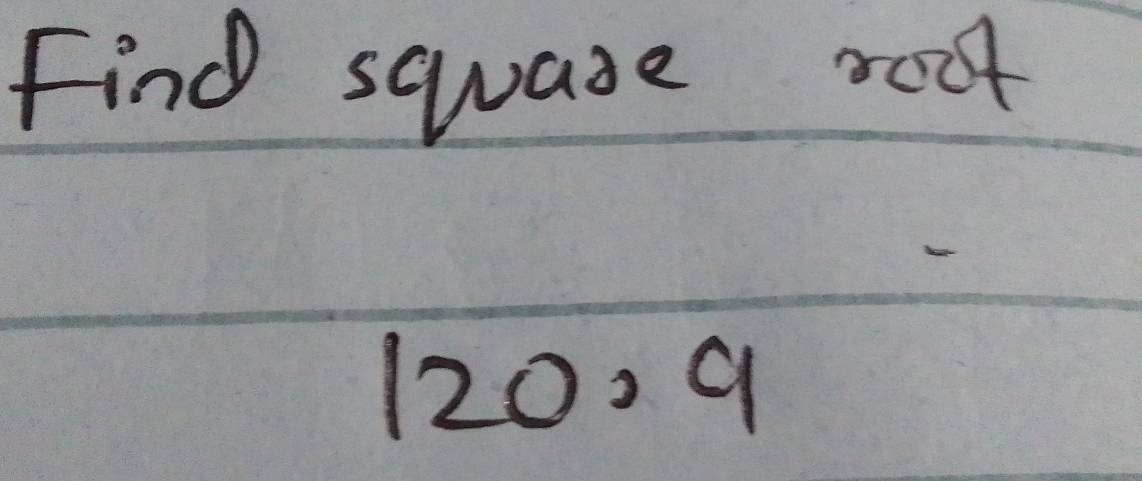 Find square root
120.9